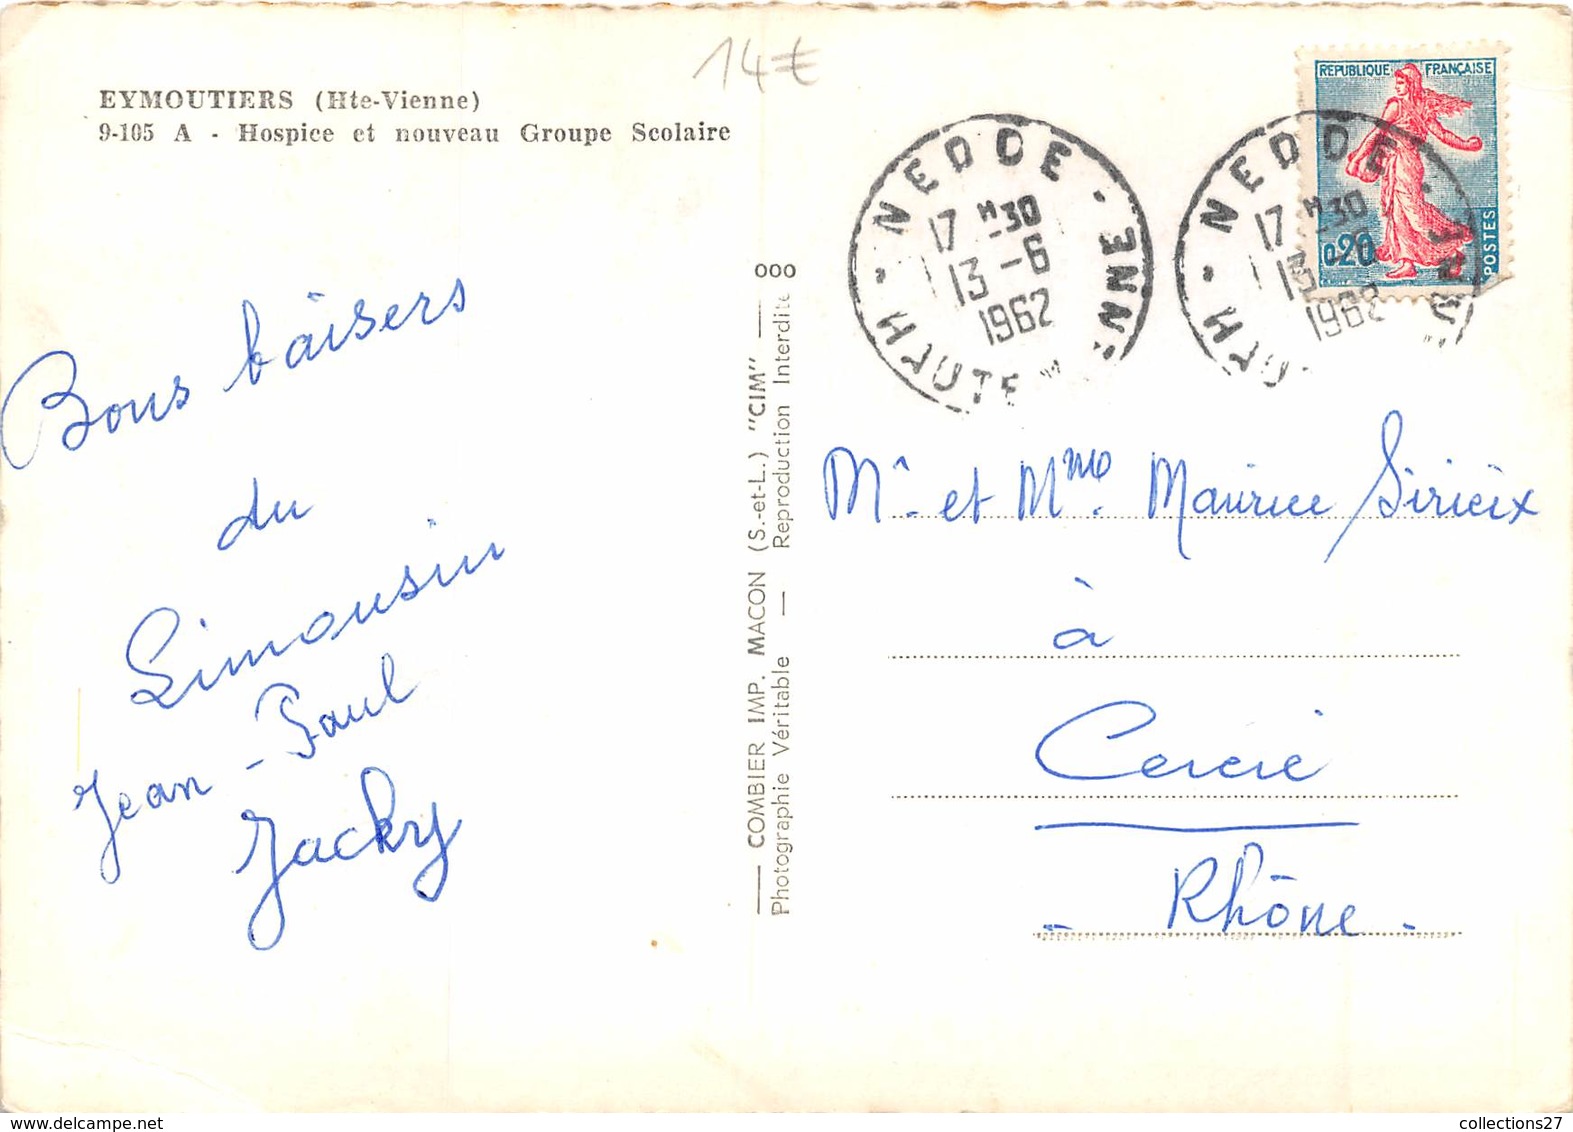 14€
EYMOUTIERS (Hte-Vienne)
9-105 A - Hospice et nouveau Groupe Scolaire
Bons baisers
du
Limousin
Jean-Paul
Jacky
COMBIER IMP. MACON (S.-et-L.) "CIM"
Photographie Véritable — Reproduction Interdite
000
NEDDE - HAUTE VIENNE
17 H 30
13 -6
1962
NEDDE -
17 H 30
13
1962
REPUBLIQUE FRANÇAISE
0,20
POSTES
Mr. et Mme. Maurice Sirieix
à
Cercié
- Rhône -
collections27